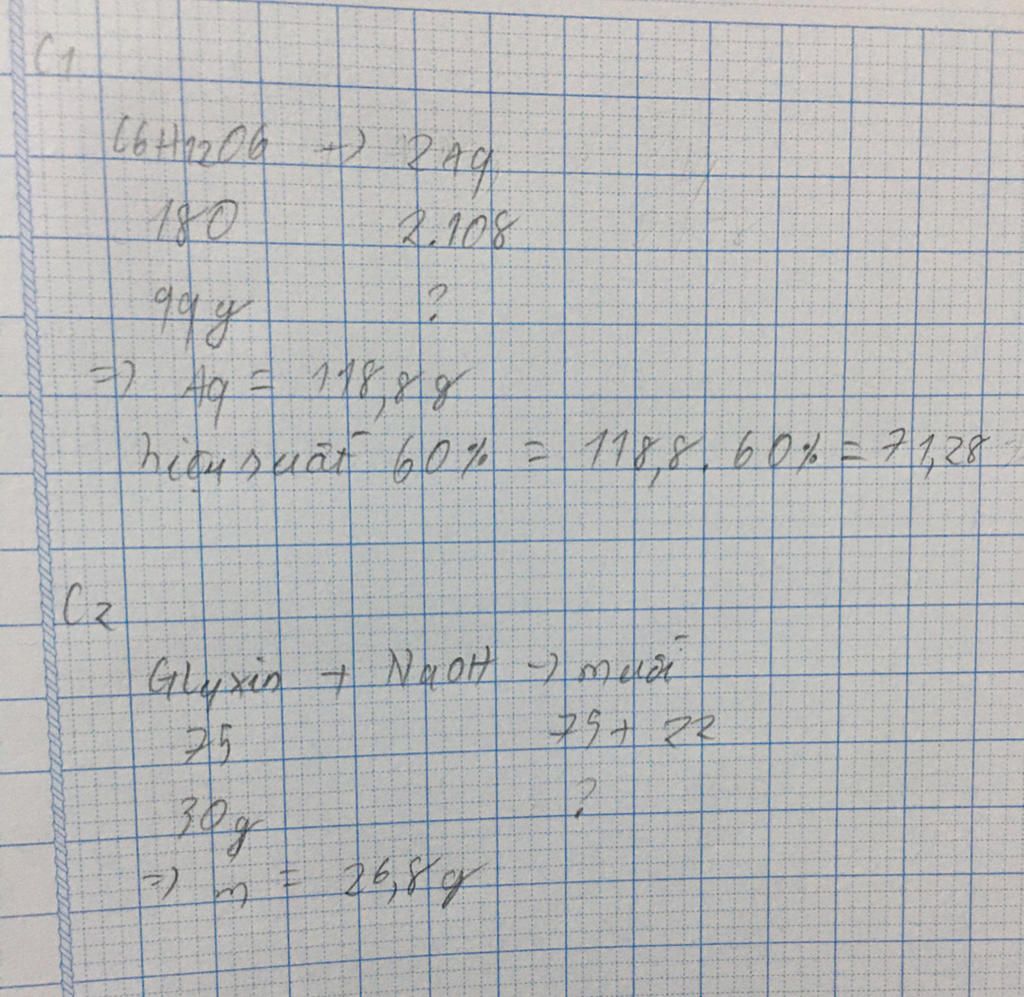 C1
C6H12O6 → 2Ag
180 2.108
99g ?
=> Ag = 118,8 g
hiệu suất 60% = 118,8. 60% = 71,28
C2
Glyxin + NaOH → muối
75 75+ 22
30g ?
=> m = 26,8g